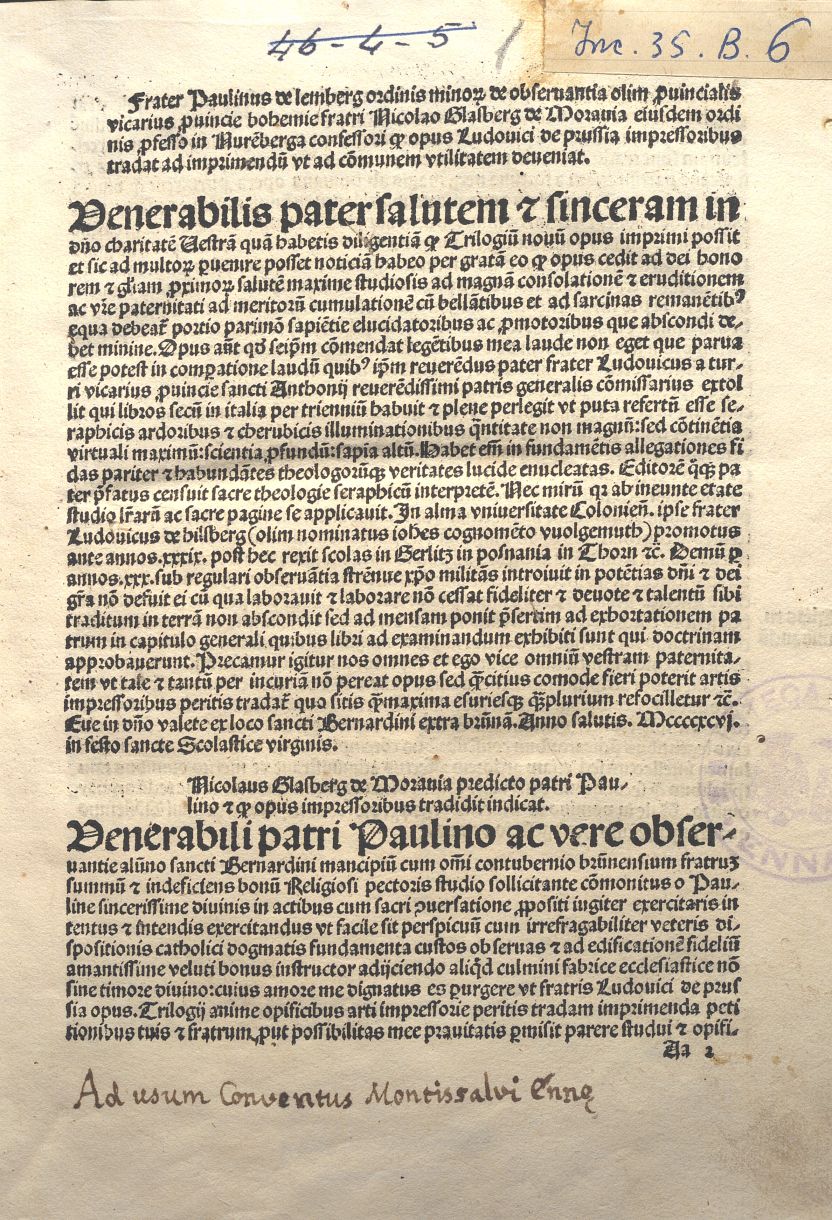 46-4-5
Inc. 35. B. 6
Frater Paulinus de lemberg ordinis minoꝝ de obseruantia olim ꝓuincialis
vicarius ꝓuincie bohemie fratri Nicolao Glasberg de Morauia eiusdem ordi
nis ꝓfesso in Nurẽberga confessori ꝙ opus Ludouici de prussia impressoribus
tradat ad imprimendũ vt ad cõmunem vtilitatem deueniat.
Venerabilis pater salutem ⁊ sinceram in
dño charitatẽ Uestrã quã habetis diligentiã ꝙ Trilogiũ nouũ opus imprimi possit
et sic ad multoꝝ ꝑuenire posset noticiã habeo per gratã eo ꝙ opus cedit ad dei hono
rem ⁊ gl̃iam ꝓximoꝝ salutẽ maxime studiosis ad magnã consolationẽ ⁊ eruditionem
ac vr̃e paternitati ad meritorũ cumulationẽ cũ bellãtibus et ad sarcinas remanẽtibꝰ
equa debeat᷑ portio parimõ sapiẽtie elucidatoribus ac ꝓmotoribus que abscondi de-
bet minime. Opus aũt qđ seip̃m cõmendat legẽtibus mea laude non eget que parua
esse potest in compatione laudũ quibꝰ ip̃m reuerẽdus pater frater Ludouicus a tur-
ri vicarius ꝓuincie sancti Anthonij reuerẽdissimi patris generalis cõmissarius extol
lit qui libros secũ in italia per trienniũ habuit ⁊ plene perlegit vt puta refertũ esse se-
raphicis ardoribus ⁊ cherubicis illuminationibus q̃ntitate non magnũ: sed cõtinẽtia
virtuali maximũ: scientia ꝓfundũ: sapia altũ. Habet em̃ in fundamẽtis allegationes fi
das pariter ⁊ habundãtes theologorũꝗ veritates lucide enucleatas. Editorẽ q̃ꝗ pa
ter p̃fatus censuit sacre theologie seraphicũ interpretẽ. Nec mirũ qꝛ ab ineunte etate
studio lr̃arũ ac sacre pagine se applicauit. In alma vniuersitate Colonieñ. ipse frater
Ludouicus de hilsberg (olim nominatus ioh̃es cognomẽto vuolgemuth) ꝓmotus
ante annos .xxxix. post hec rexit scolas in Gerlitz in posnania in Thorn ⁊c̃. Demũ ꝑ
annos .xxx. sub regulari obseruãtia strẽnue xp̃o militãs introiuit in potẽtias dñi ⁊ dei
gr̃a nõ defuit ei cũ qua laborauit ⁊ laborare nõ cessat fideliter ⁊ deuote ⁊ talentũ sibi
traditum in terrã non abscondit sed ad mensam ponit p̃sertim ad exhortationem pa
trum in capitulo generali quibus libri ad examinandum exhibiti sunt qui doctrinam
approbauerunt. Precamur igitur nos omnes et ego vice omniũ vestram paternita-
tem vt tale ⁊ tantũ per incuriã nõ pereat opus sed q̃ꝫcitius comode fieri poterit artis
impressoribus peritis tradat᷑ quo sitis q̃ꝫmaxima esuriesꝗ q̃ꝫplurium refocilletur ⁊c̃.
Eue in dño valete ex loco sancti Bernardini extra brũnã. Anno salutis. Mccccxcvj.
in festo sancte Scolastice virginis.
Nicolaus Glasberg de Morauia predicto patri Pau-
lino ⁊ ꝙ opus impressoribus tradidit indicat.
Venerabili patri Paulino ac vere obser-
uantie alũno sancti Bernardini mancipiũ cum om̃i contubernio brũnensium fratruꝫ
summũ ⁊ indeficiens bonũ Religiosi pectoris studio sollicitante cõmonitus o Pau-
line sincerissime diuinis in actibus cum sacri ꝯuersatione ꝓpositi iugiter exercitaris in
tentus ⁊ intendis exercitandus vt facile sit perspicuũ cum irrefragabiliter veteris di-
spositionis catholici dogmatis fundamenta custos obseruas ⁊ ad edificationẽ fideliũ
amantissime veluti bonus instructor adijciendo aliq̃d culmini fabrice ecclesiastice nõ
sine timore diuino: cuius amore me dignatus es ꝑurgere vt fratris Ludouici de prus
sia opus. Trilogij anime opificibus arti impressorie peritis tradam imprimenda peti
tionibus tuis ⁊ fratrum, ꝓut possibilitas mee prauitatis ꝑmisit parere studui ⁊ opifi-
Aa 2
Ad usum Conventus Montissalvi Ennę